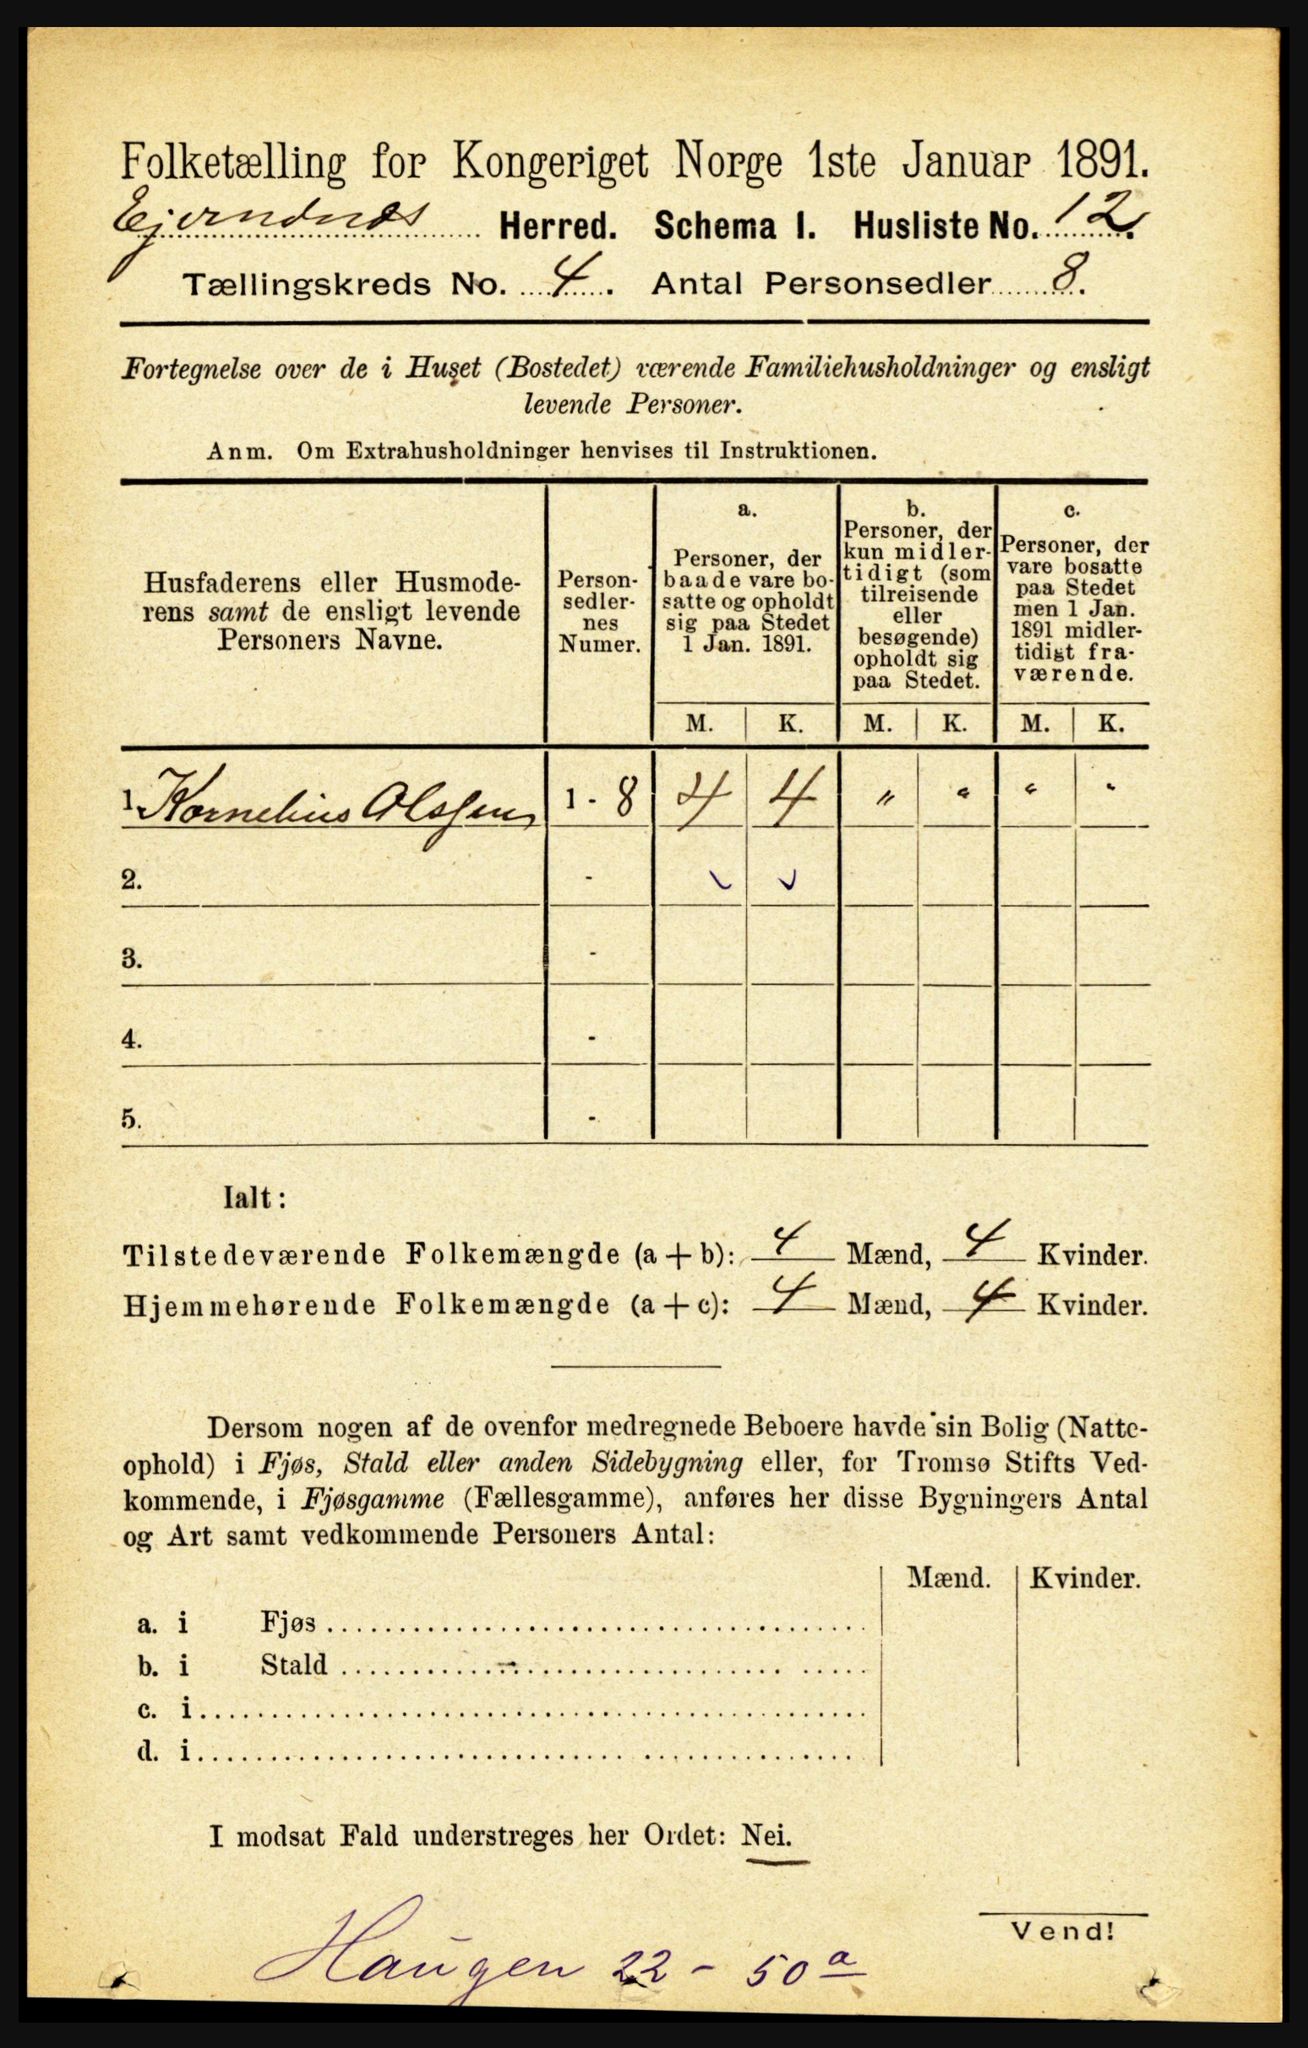 Folketælling for Kongeriget Norge 1ste Januar 1891.
Ejerndnæs Herred. Schema I. Husliste No. 12.
Tællingskreds No. 4. Antal Personsedler 8.
Fortegnelse over de i Huset (Bostedet) værende Familiehusholdninger og ensligt
levende Personer.
Anm. Om Extrahusholdninger henvises til Instruktionen.
Husfaderens eller Husmode-
rens samt de ensligt levende
Personers Navne.
Person-
sedler-
nes
Numer.
a.
Personer, der
baade vare bo-
satte og opholdt
sig paa Stedet
1 Jan. 1891.
b.
Personer, der
kun midler-
tidigt (som
tilreisende
eller
besøgende)
opholdt sig
paa Stedet.
c.
Personer, der
vare bosatte
paa Stedet
men 1 Jan.
1891 midler-
tidigt fra-
værende.
M. K. M. K. M. K.
1. Kornelius Olssen 1 - 8 4 4 " " " "
2. -
3. -
4. -
5. -
Ialt:
Tilstedeværende Folkemængde (a + b): 4 Mænd, 4 Kvinder.
Hjemmehørende Folkemængde (a + c): 4 Mænd, 4 Kvinder.
Dersom nogen af de ovenfor medregnede Beboere havde sin Bolig (Natte-
ophold) i Fjøs, Stald eller anden Sidebygning eller, for Tromsø Stifts Ved-
kommende, i Fjøsgamme (Fællesgamme), anføres her disse Bygningers Antal
og Art samt vedkommende Personers Antal:
Mænd. Kvinder.
a. i Fjøs
b. i Stald
c. i
d. i
I modsat Fald understreges her Ordet: Nei.
Vend!
Haugen 22 - 50 a